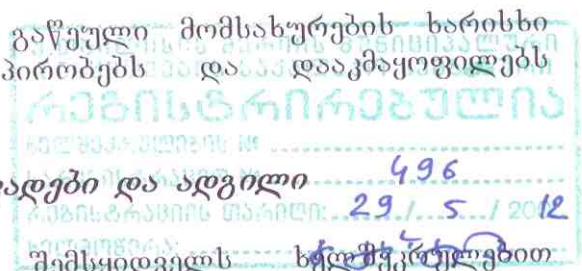 გაწეული მომსახურების ხარისხი
პირობებს და დააკმაყოფილებს
რეგისტრირებულია
ხელშეკრულების №
ვადები და ადგილი 496
რეგისტრაციის თარიღი: 29 / 5 / 2012
ხელმოწერა:
შემსყიდველს ხელშეკრულებით